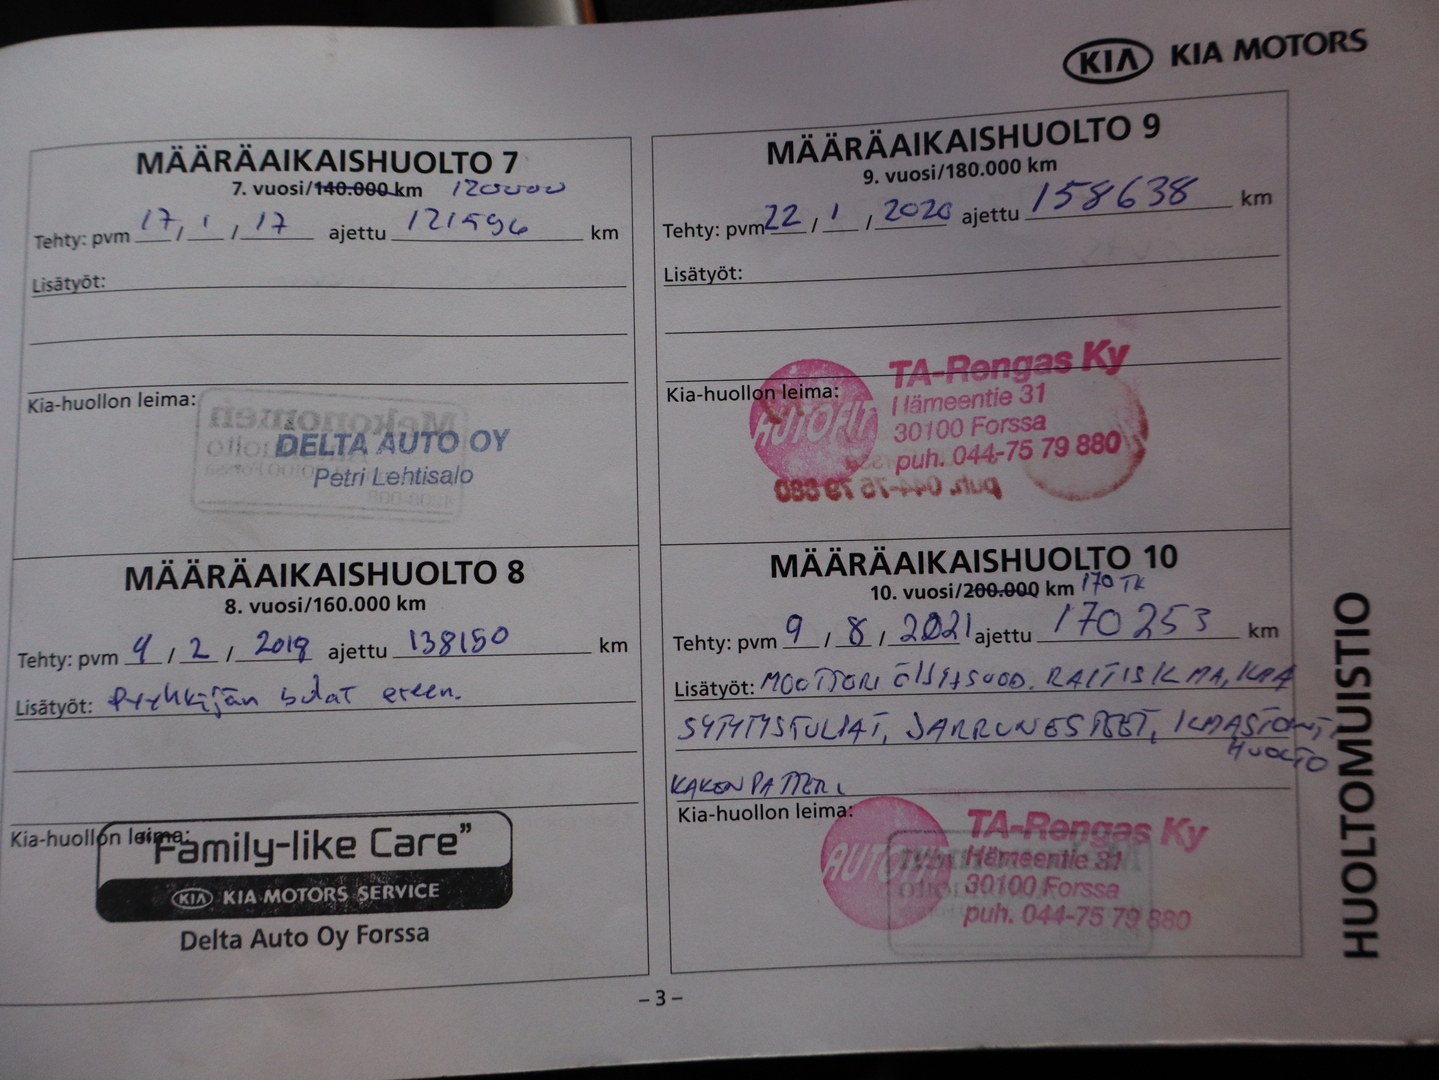 KIA KIA MOTORS
MÄÄRÄAIKAISHUOLTO 7
7. vuosi/140.000 km 120000
Tehty: pvm 17/1/17 ajettu 121596 km
Lisätyöt:
Kia-huollon leima:
DELTA AUTO OY
Petri Lehtisalo
MÄÄRÄAIKAISHUOLTO 8
8. vuosi/160.000 km
Tehty: pvm 4/2/2019 ajettu 138150 km
Lisätyöt: Pyyhkijän sulat eteen.
Kia-huollon leima:
"Family-like Care"
KIA KIA MOTORS SERVICE
Delta Auto Oy Forssa
MÄÄRÄAIKAISHUOLTO 9
9. vuosi/180.000 km
Tehty: pvm 22/1/2020 ajettu 158638 km
Lisätyöt:
Kia-huollon leima:
AUTOFIT
TA-Rengas Ky
Hämeentie 31
30100 Forssa
puh. 044-75 79 880
MÄÄRÄAIKAISHUOLTO 10
10. vuosi/200.000 km 170 TK
Tehty: pvm 9/8/2021 ajettu 170253 km
Lisätyöt: MOOTTORI ÖLJY+SUOD. RAITISILMA,
SYTYTYSTULPAT, JARRUNESTEET, ILMASTOINTI
HUOLTO
KAKONPATTERI
Kia-huollon leima:
TA-Rengas Ky
Hämeentie 31
30100 Forssa
puh. 044-75 79 880
– 3 –
HUOLTOMUISTIO